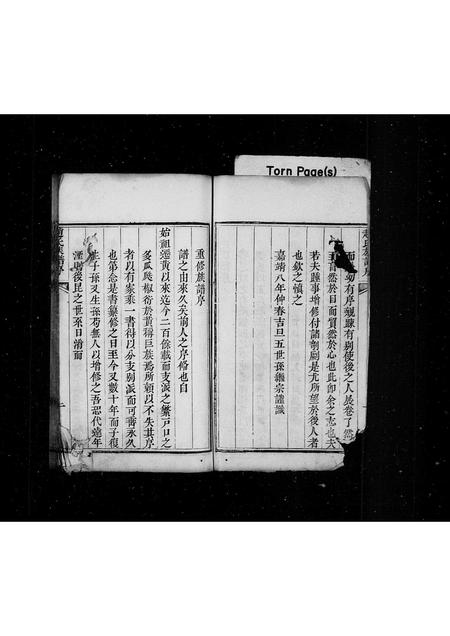 Torn Page(s)
而 幼有序親疎有別使後之人展卷了然
瞭然於目而實然於心也此卽余之志也夫
若夫踵事增修付諸剞劂是尤所望於後人者
也欽之愼之
嘉靖八年仲春吉旦五世孫繼宗謹識
重修族譜序
譜之由來久矣前人之序條也自
始祖遷黃以來迄今二百餘載而支派之繁戸口之
多瓜瓞椒衍於黃稱巨族焉所賴以不失其序
者以有家乘一書得以分支別派而可垂永久
也第念是書纂修之日至今又數十年而子復
生子孫又生孫苟無人以增修之吾恐代遠年
湮則後昆之世系日淆而